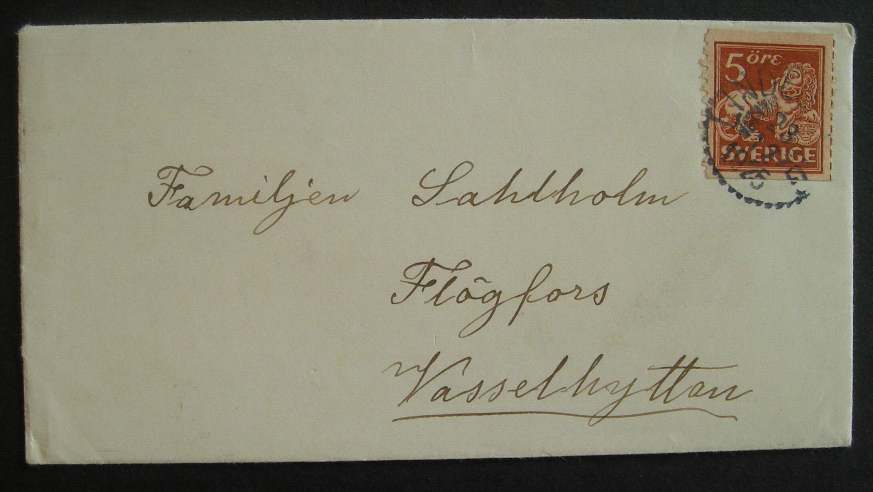 5 öre
SVERIGE
Familjen Sahlholm
Flögfors
Vasselhyttan